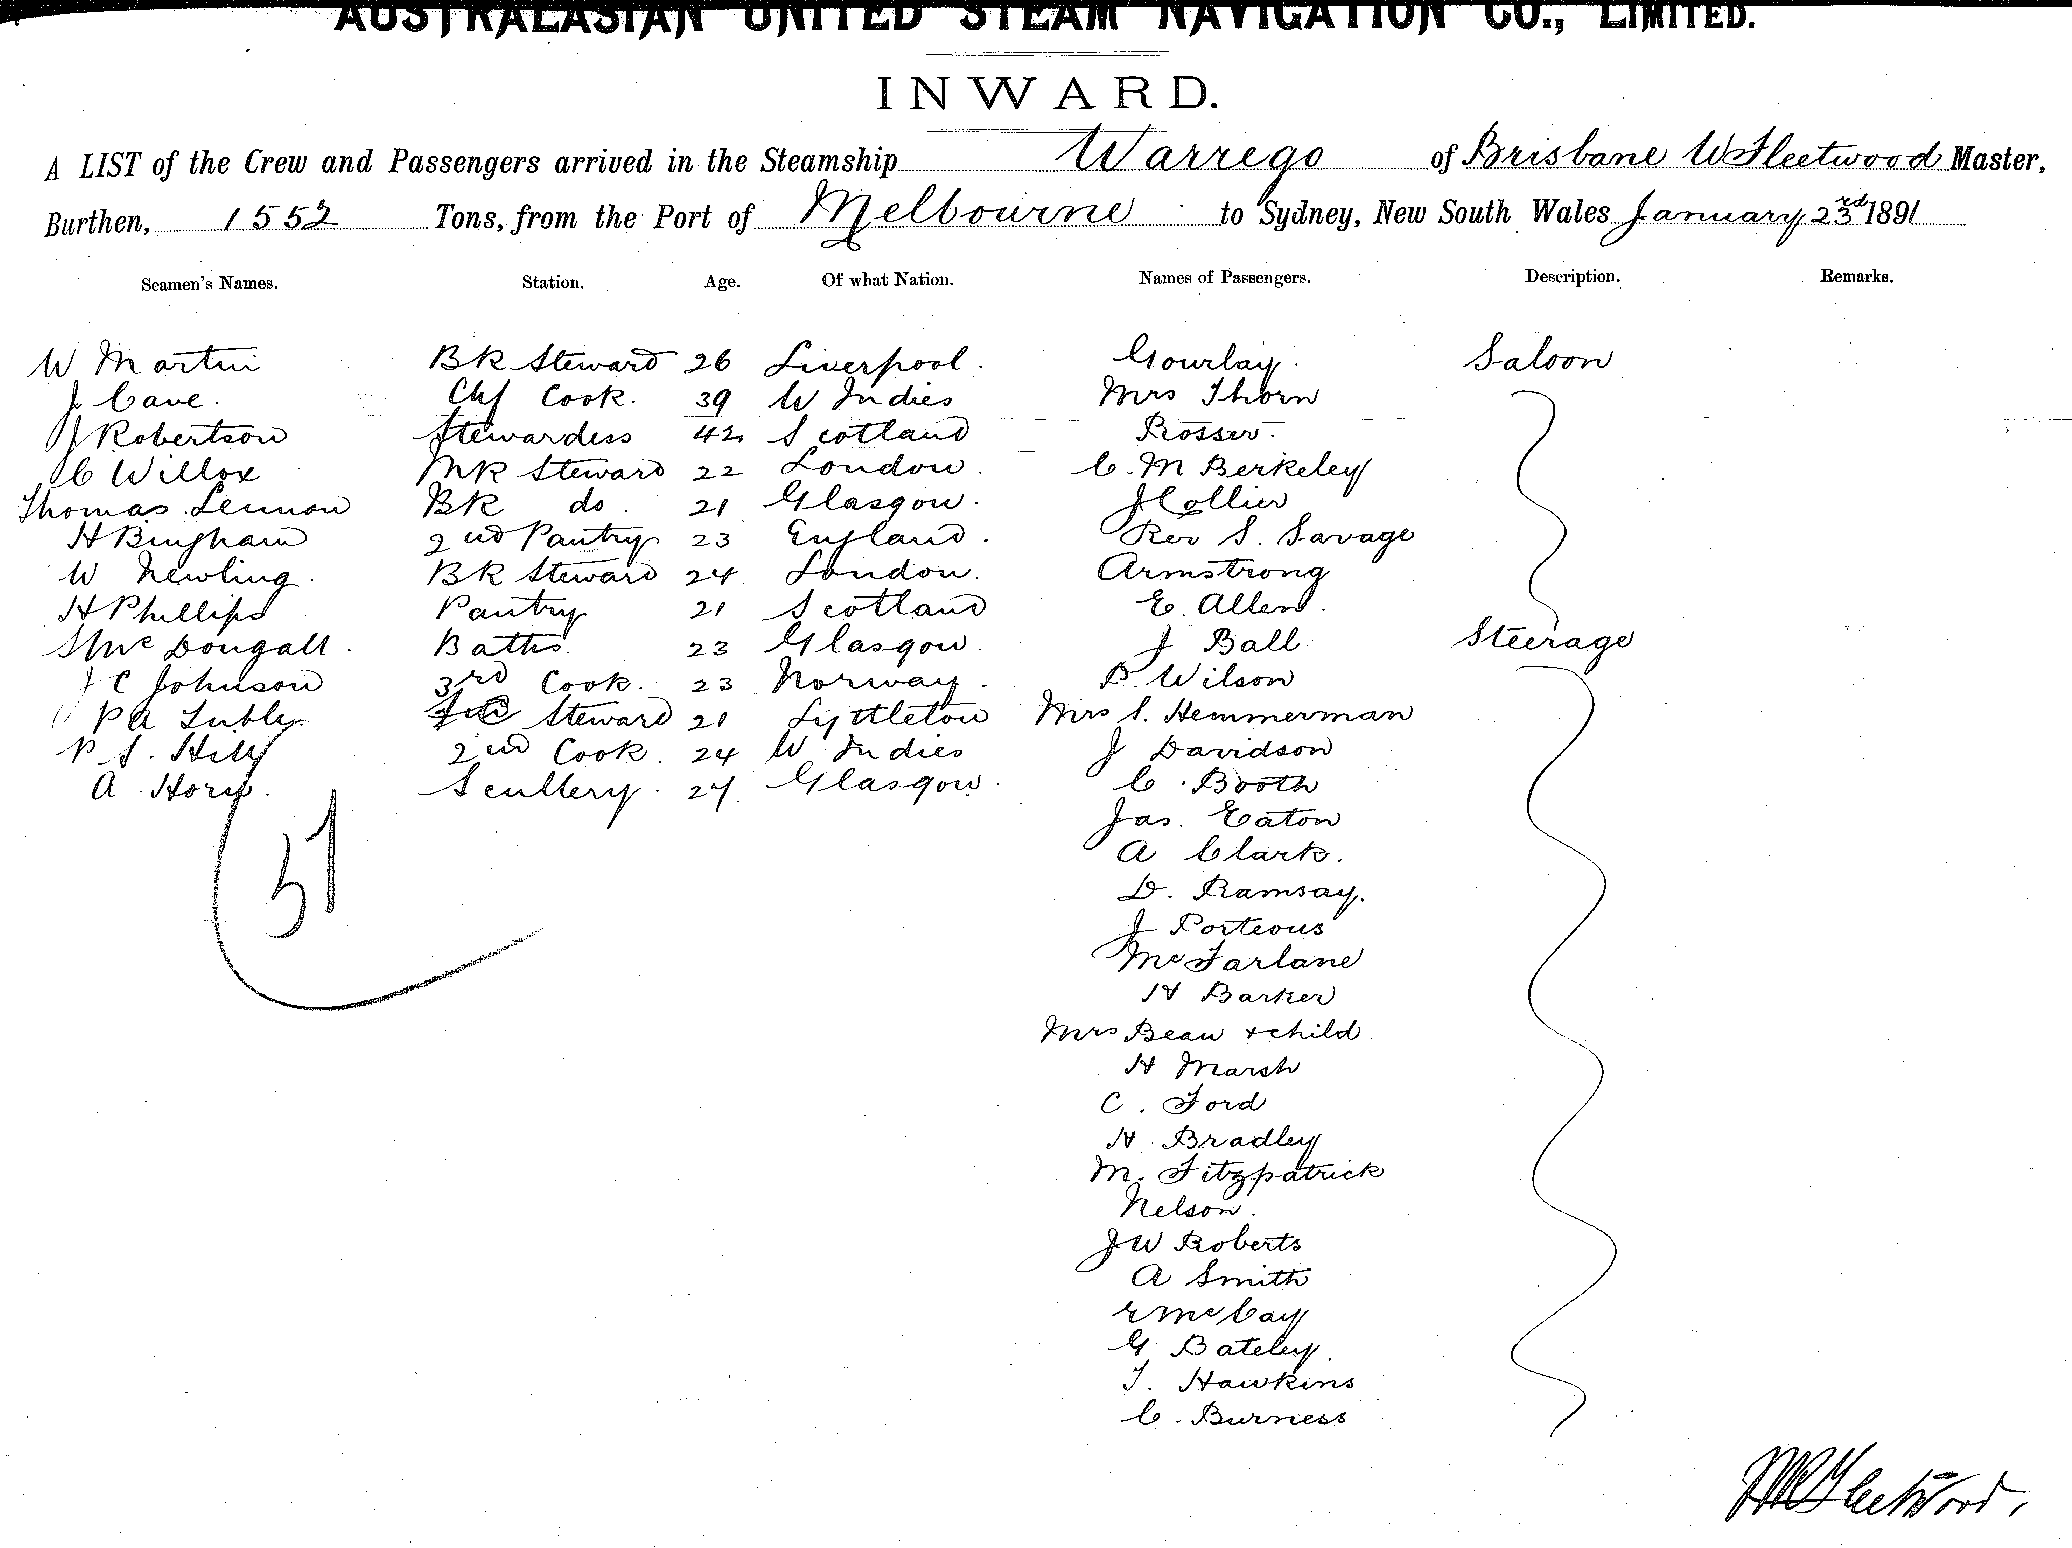 AUSTRALASIAN UNITED STEAM NAVIGATION CO., LIMITED.
INWARD.
A LIST of the Crew and Passengers arrived in the Steamship Warrego of Brisbane W Fleetwood Master,
Burthen, 1552 Tons, from the Port of Melbourne to Sydney, New South Wales January 23rd 1891
Seamen's Names. Station. Age. Of what Nation. Names of Passengers. Description. Remarks.
W Martin BK Steward 26 Liverpool. Gourlay. Saloon
J Cave. Chf Cook. 39 W Indies Mrs Thorn
J Robertson Stewardess 42 Scotland Rosser.
C Willox MK Steward 22 London. C. M Berkeley
Thomas Lennon BK do. 21 Glasgow. J Collier
H Bingham 2nd Pantry 23 England. Rev S. Savage
W Newling. BK Steward 24 London. Armstrong
H Phillips Pantry 21 Scotland E. Allen.
McDougall. Baths. 23 Glasgow. J Ball Steerage
J C Johnson 3rd Cook. 23 Norway. P Wilson
P A Steward 21 Lyttleton Mrs S. Hemmerman
P S. Hill 2nd Cook. 24 W Indies J Davidson
A Horn. Scullery. 24. Glasgow. C. Booth
Jas. Eaton
A Clark.
D. Ramsay.
J Porteous
McFarlane
H Barker
Mrs Bean + child
H Marsh
C. Ford
H. Bradley
M. Fitzpatrick
Nelson.
J W Roberts
A Smith
McCay
G Bateley.
T. Hawkins
C. Burness
51
Fleetwood.